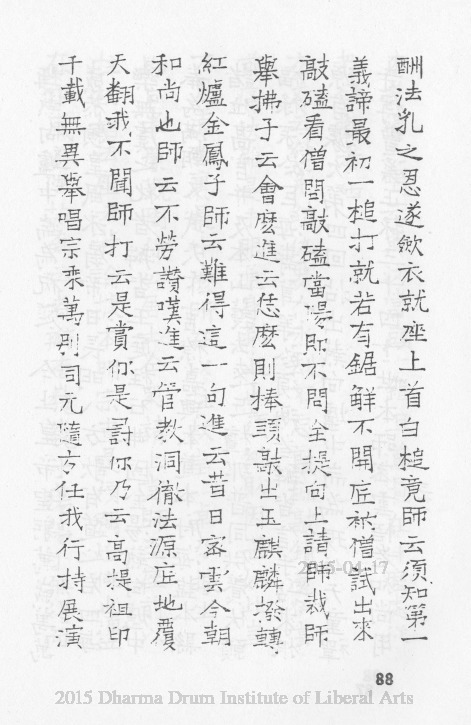 酬法乳之恩遂斂衣就座上首白槌竟師云須知第一
義諦最初一槌打就若有鋸解不開底衲僧試出來
敲磕看僧問敲磕當陽即不問全提向上請師裁師
舉拂子云會麼進云恁麼則捧頭敲出玉麒麟撥轉
紅爐金鳳子師云難得這一句進云昔日密雲今朝
和尚也師云不勞讚嘆進云管教洞徹法源底地覆
天翻我不聞師打云是賞你是罰你乃云高提祖印
千載無異舉唱宗乘萬別司元隨方任我行持展演
88
2015-04-17
2015 Dharma Drum Institute of Liberal Arts